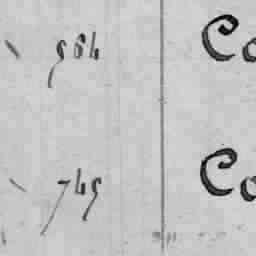 964 Co
745 Co